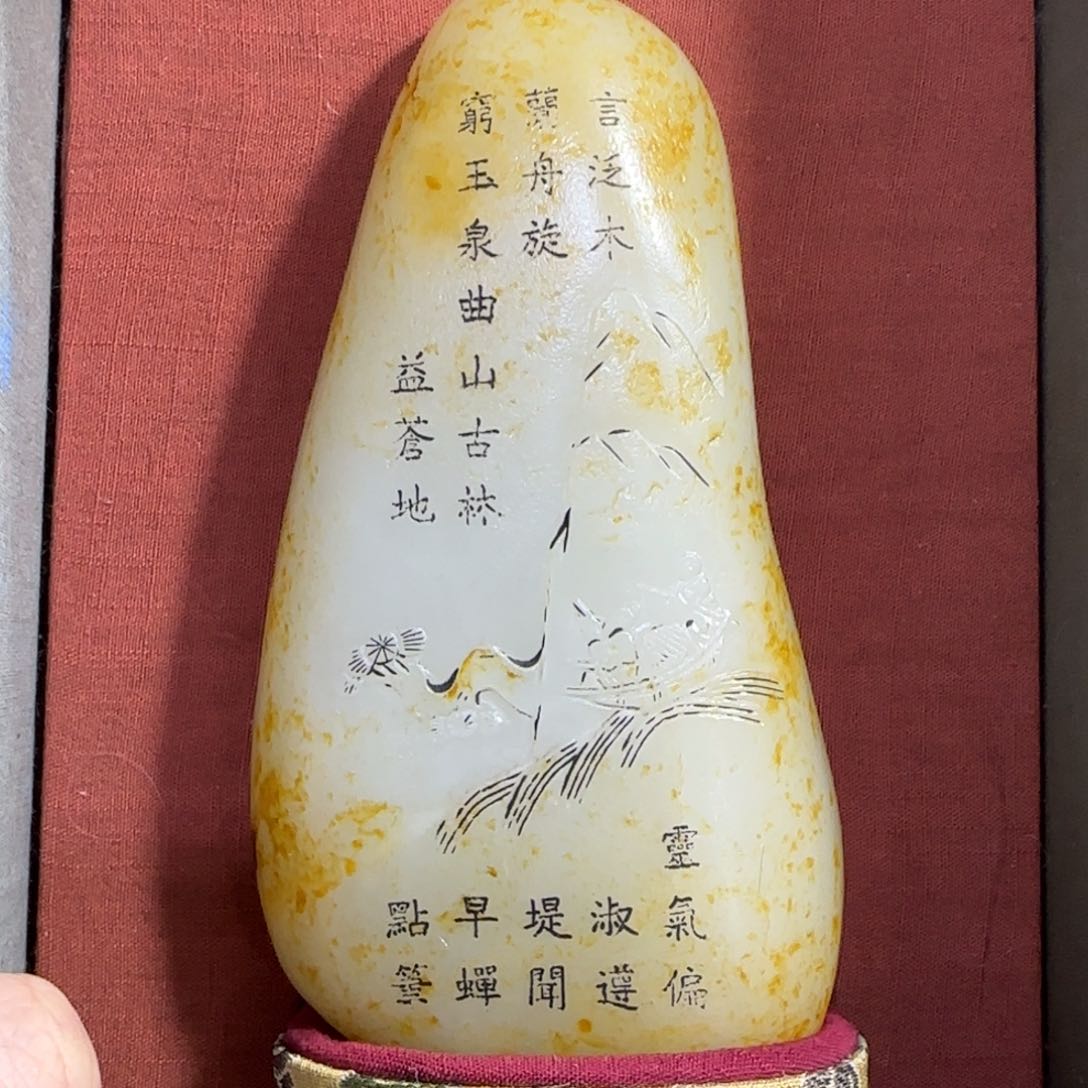 言泛木
蘭舟旋
窮玉泉曲山古林
益蒼地
靈氣偏
淑遵
堤聞
早蟬
點